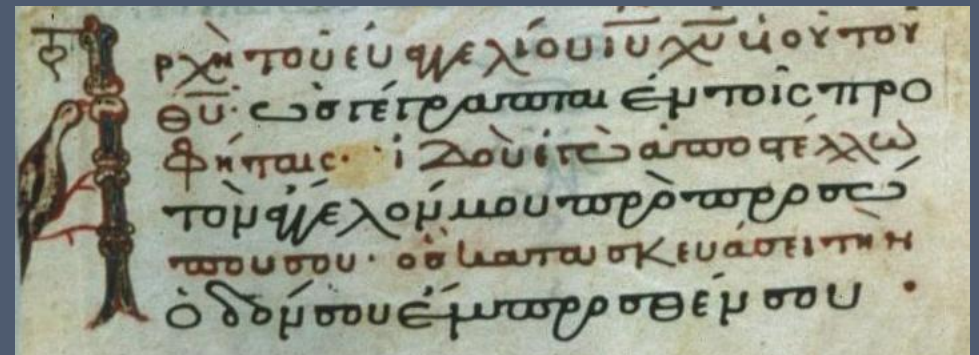 Ἀρχὴ τοῦ εὐαγγελίου ι̅υ̅ χ̅υ̅ υἱοῦ τοῦ
θ̅υ̅· ὡς γέγραπται ἐν τοῖς προ
φήταις· ἰδοὺ ἐγὼ ἀποστέλλω
τὸν ἄγγελόν μου πρὸ προσώ
που σου· ὃς κατασκευάσει τὴν
ὁδόν σου ἔμπροσθέν σου